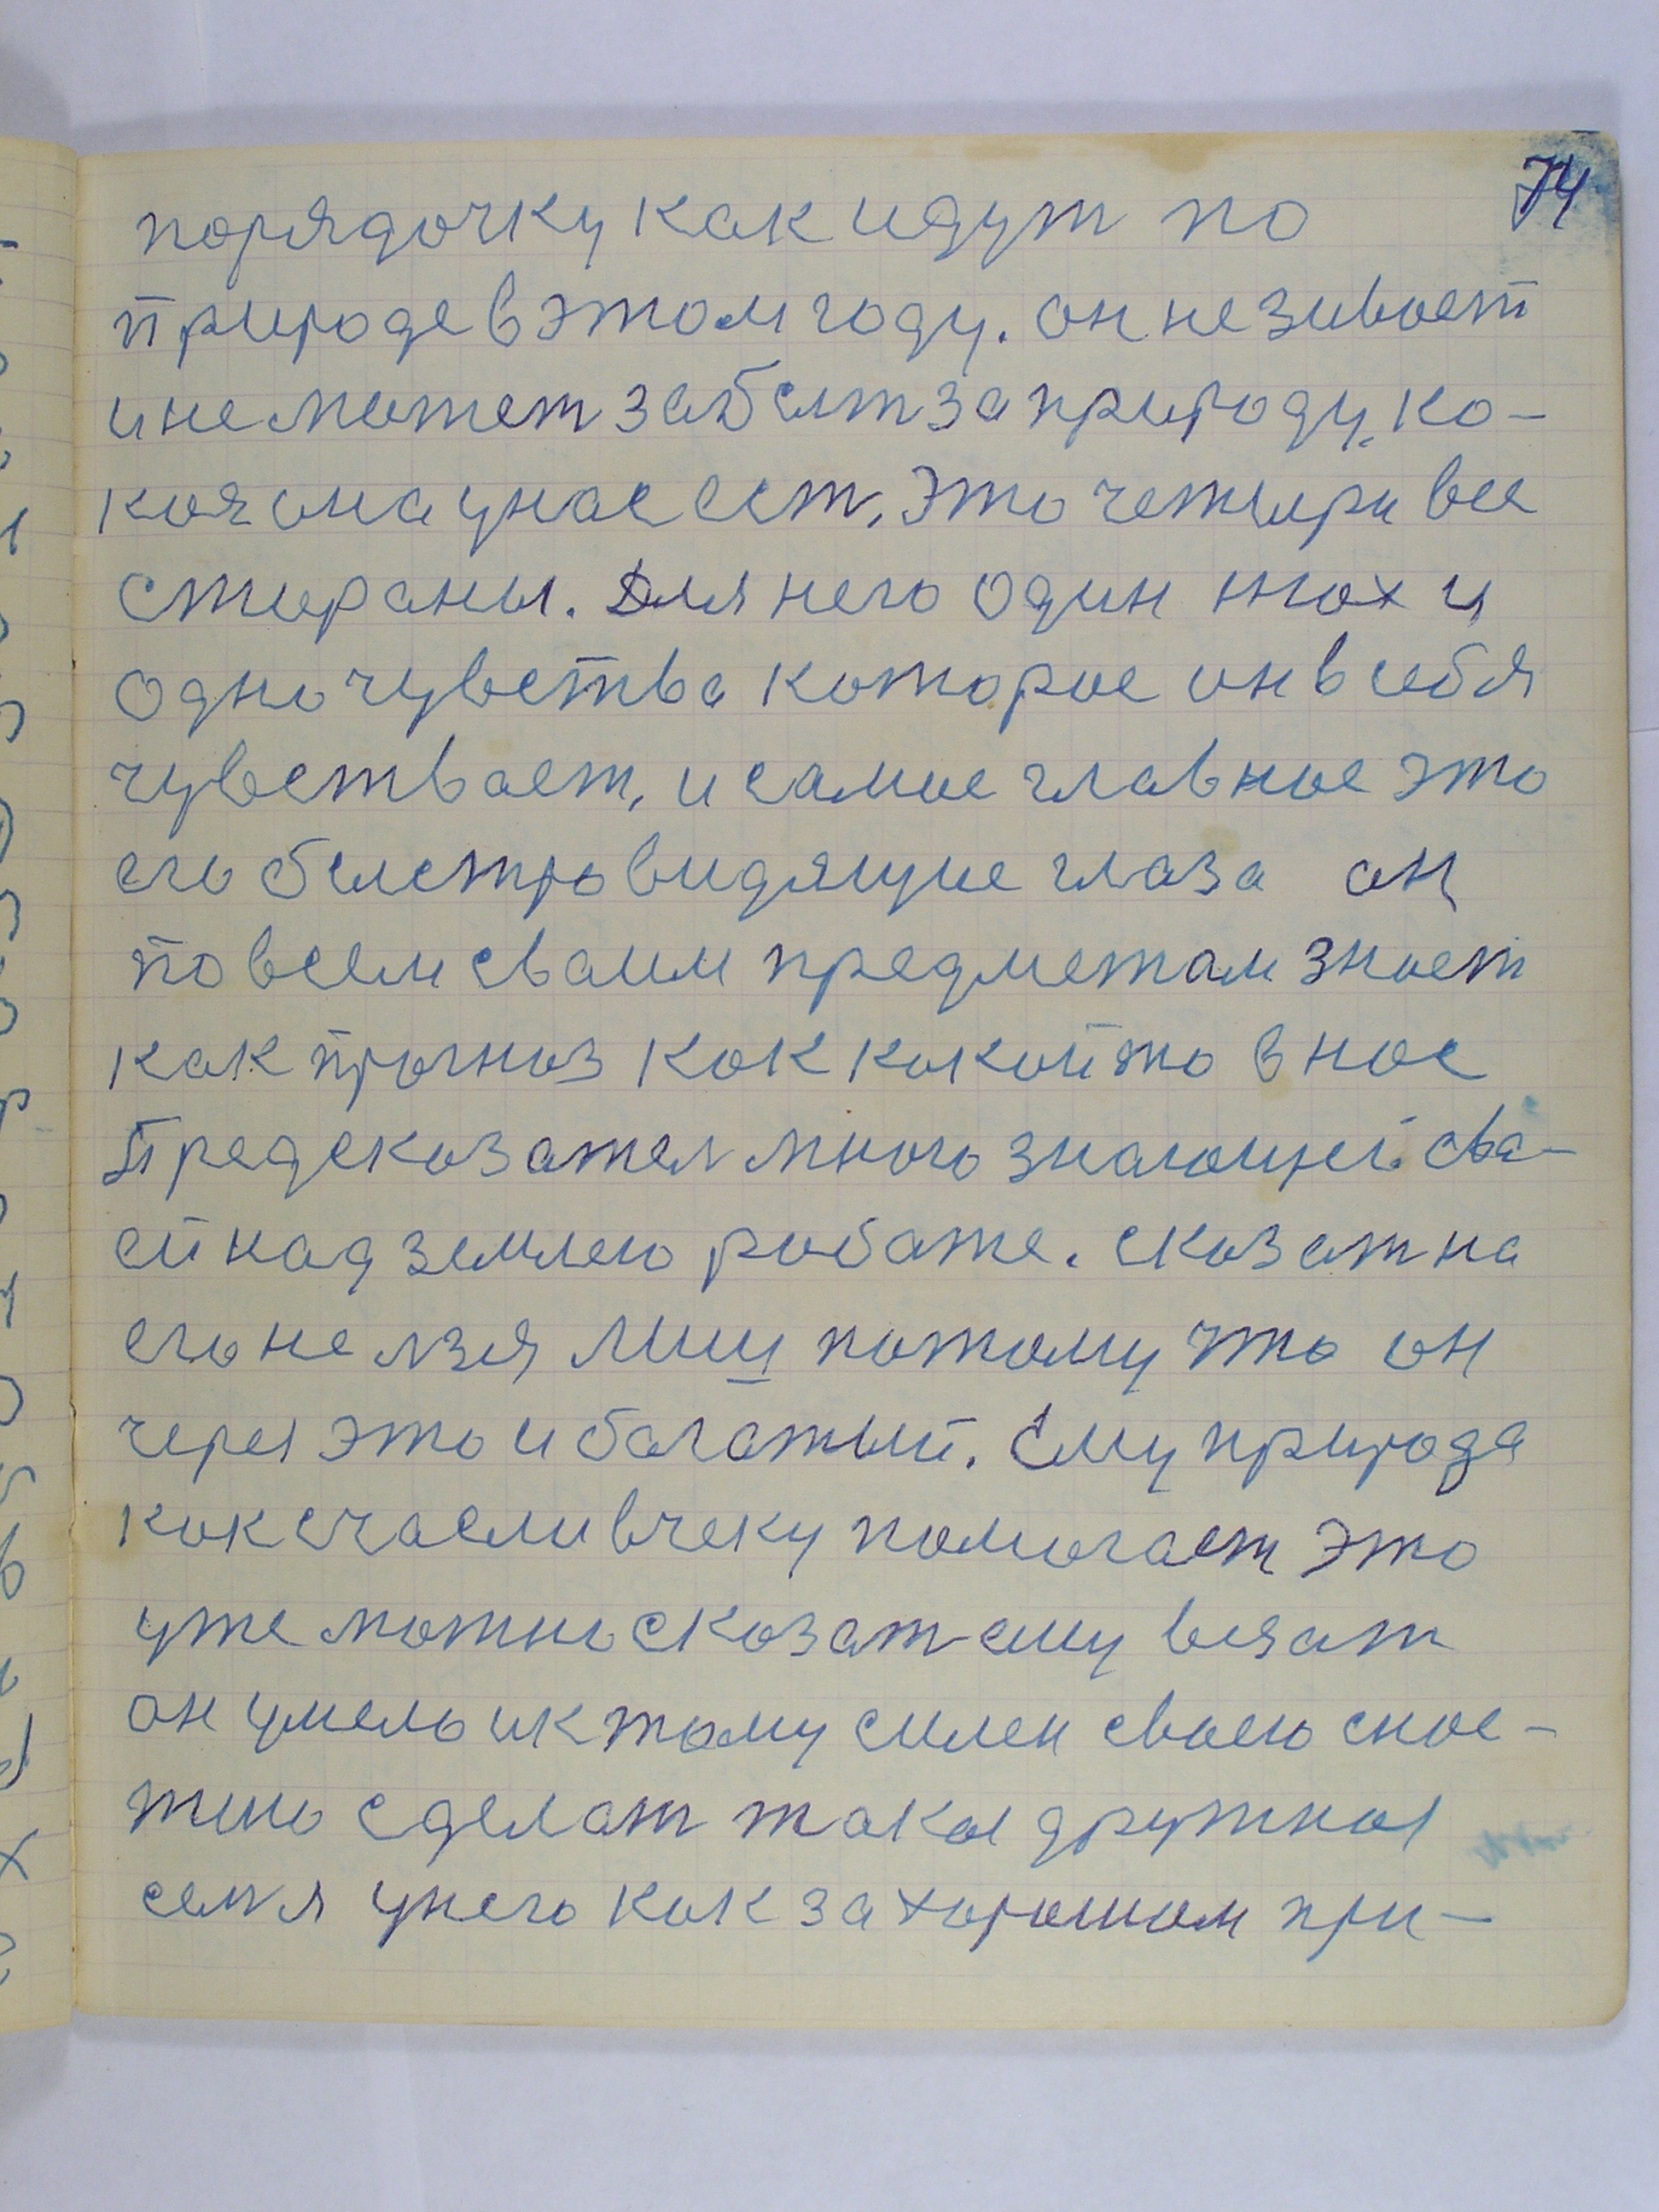 74
порядочку как идут по
природе в этом году. он не зивает
и не может забыт за природу, ко-
кая она у нас ест, это четыри все
стораны. Для него один нюх и
одно чувства которое он в себя
чувствает, и самое главное это
его быстро видящие глаза он
по всем сваим предметам знает
как прогноз как какой то в нас
Предсказател много знающий сва-
ей над землею работе. сказат на
его нелзя лиш потому что он
через это и богатый. Ему природа
как счасливчеку помогает это
уже можно сказат ему везат
он умело и к тому силен своею снос-
тию сделат такая дружная
семя у него как за хорошом при-